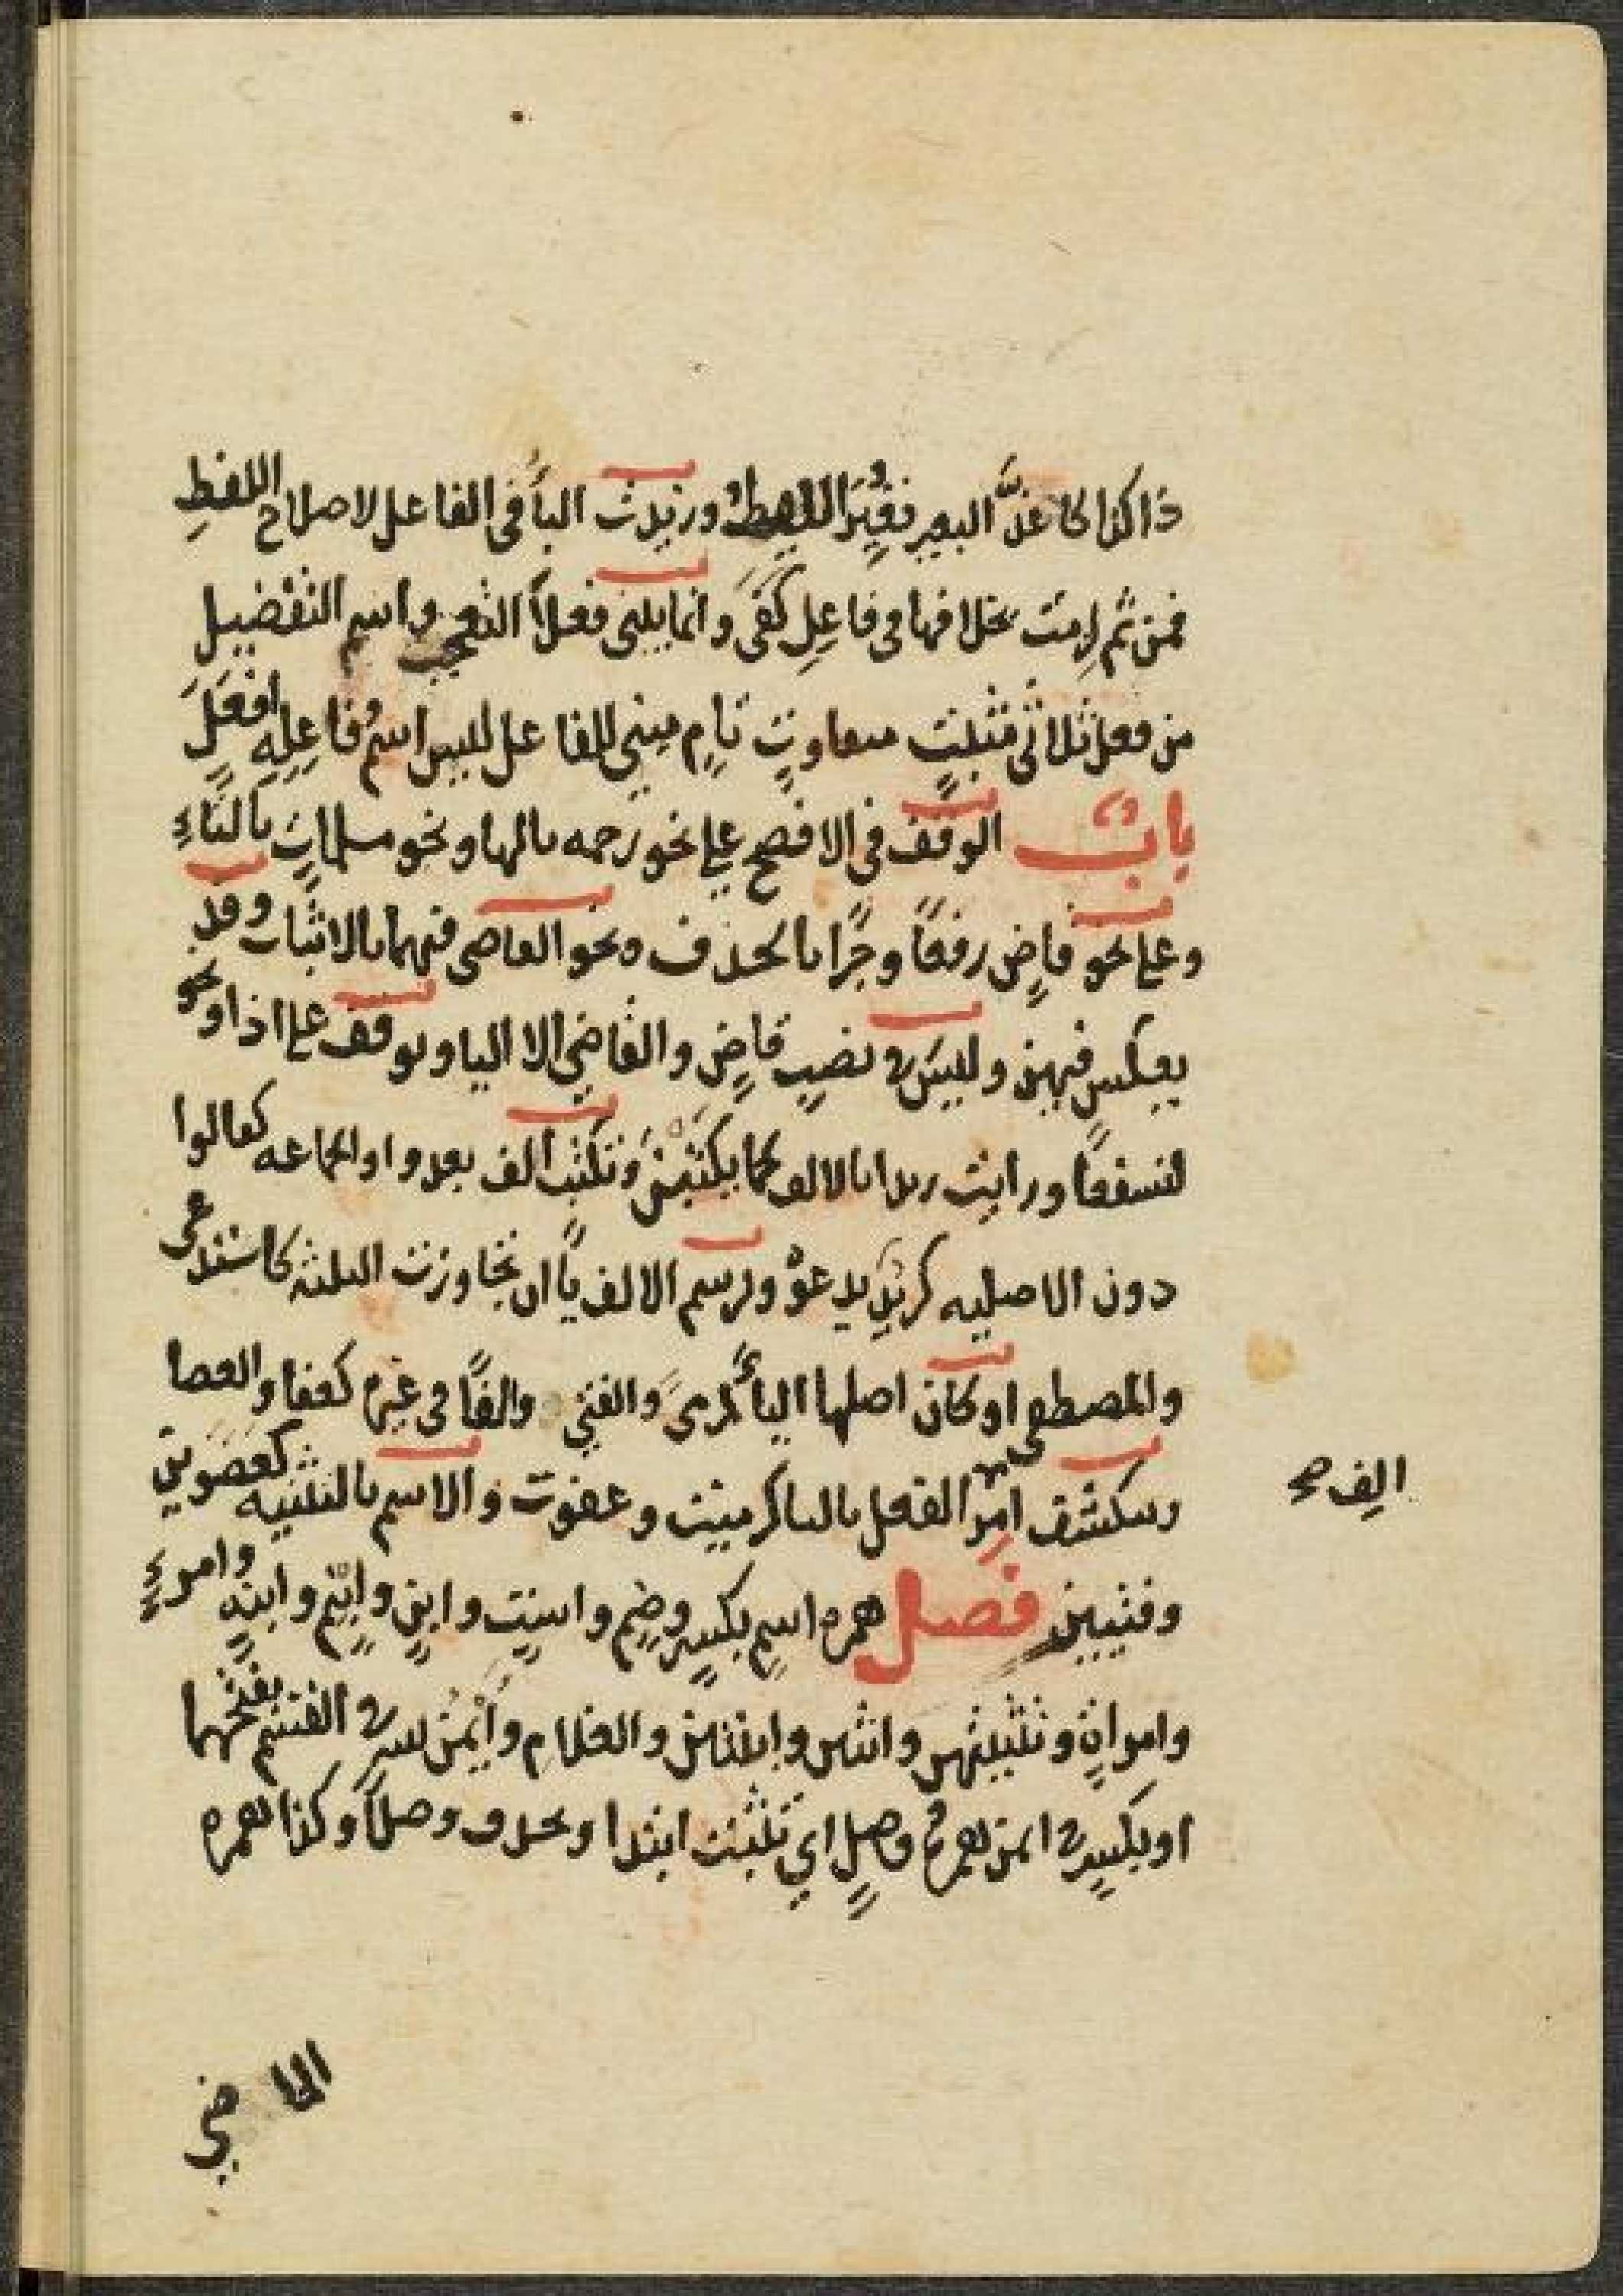 ذا كذا كاغدَّ البعير فغُيّر اللفظُ وزيدت الباءُ في الفاعل لاصلاح اللفظِ
فمن ثَم لزمت بخلافها في فاعِلِ كَفَى وانما يبنى فعلاَ التعجب واسم التفضيل
من فعل ثلاثي مثبتٍ متفاوتٍ تامٍ مبني للفاعل ليس اسمُ فاعِلِه افعَلَ
باب الوقف في الافصح على نحو رحمه بالها ونحو مسلماتٍ بالتاءِ
وعلى نحو قاضٍ رفعًا وجرًا بالحذف ونحو القاضي فيهما بالاثبات وقد
يعكس فيهن وليس في نصبِ قاضٍ والقاضي الا اليا ويوقف على اذا ونحو
لنسفعًا ورايت زيدا بالالف كما يكتبن وتكتب الف بعد واو الجماعه كقالوا
دون الاصليه كزيد يدعو وترسم الالف ياً ان تجاوزت الثلثه كاستدعى
والمصطفى او كان اصلها الياءُ كرمى والفتى والفًا في غيره كعفا والعصا
وينكشف امرُ الفعل بالتا كرميت وعفوت والاسم بالتثنيه كعَصَوين
الف صح
وفتيين فصل همزه اسمٍ بكسرٍ وضمٍ واستٍ وابنٍ وابنمٍ وابنةٍ وامرءٍ
وامراةٍ وتثنيتهن واثنين واثنتين والغلام وايمن الله في القسم بفتحهما
او بكسرٍ في ايمن همزةُ وصلٍ اي تثبت ابتدا وتحذف وصلاً وكذا همزه
الماضي